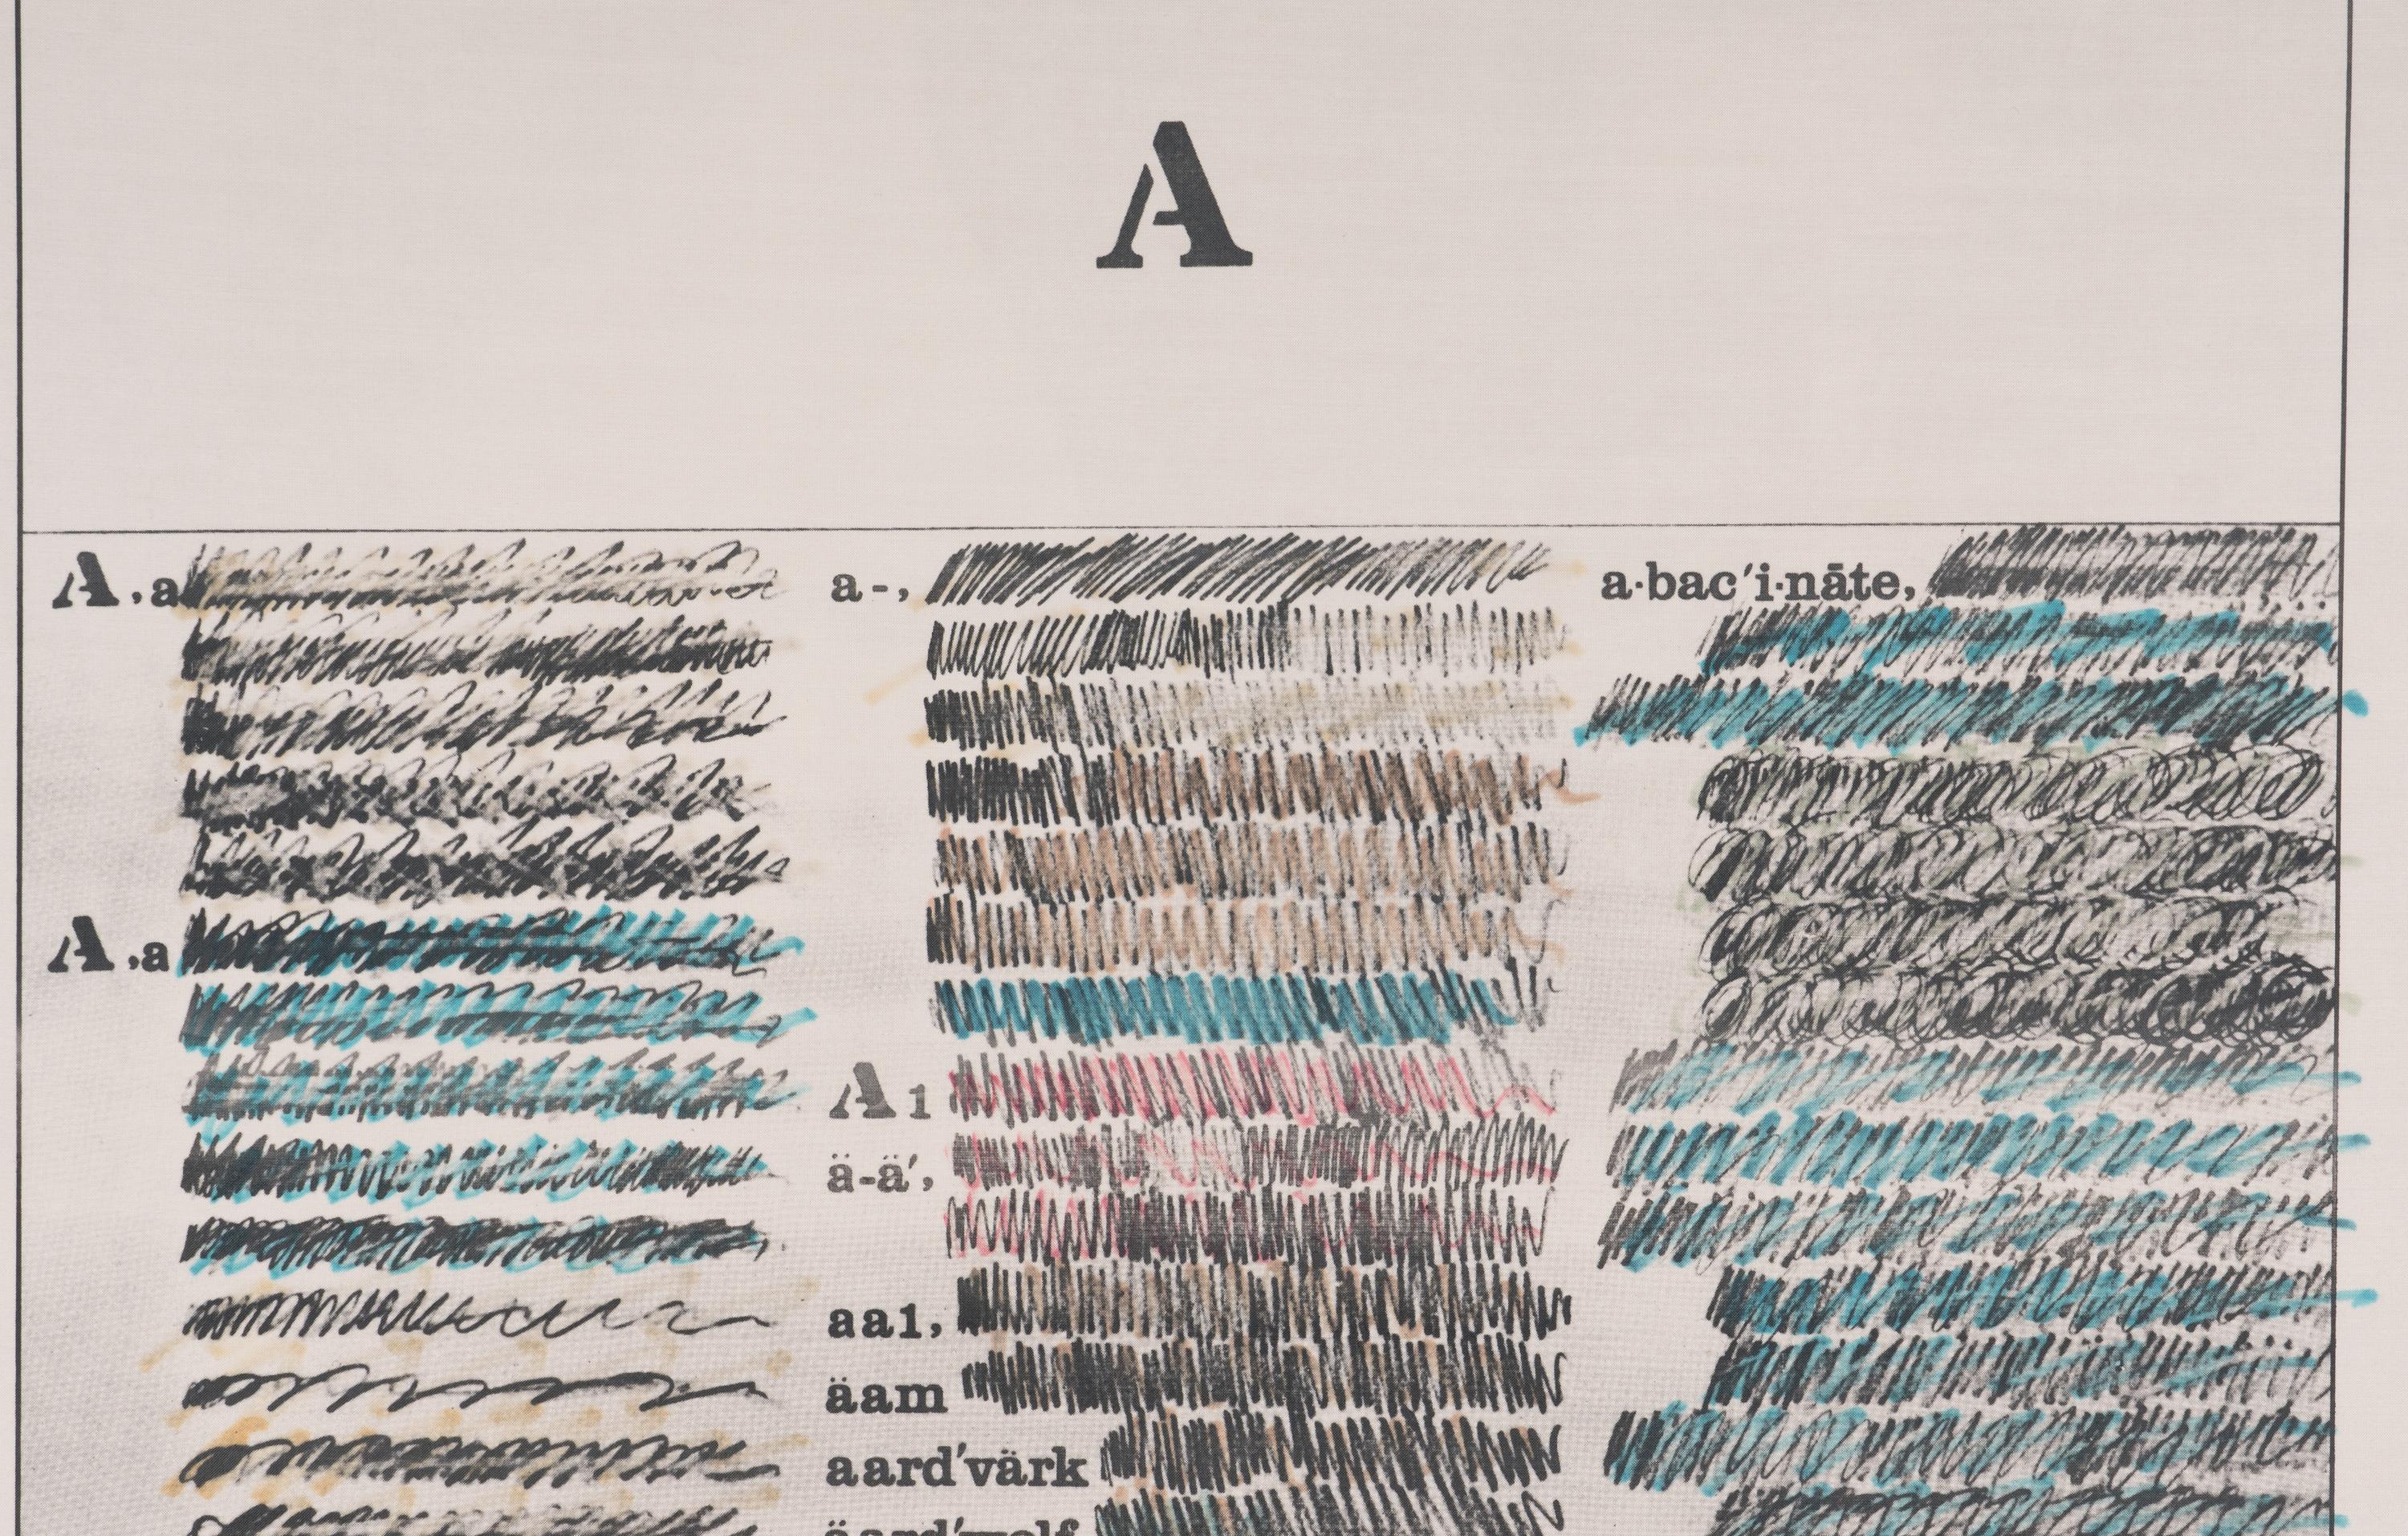 A
A, a
A, a
a-,
A 1
ä-ä′,
aa1,
äam
aard′värk
äard′wolf
a·bac′i·nāte,